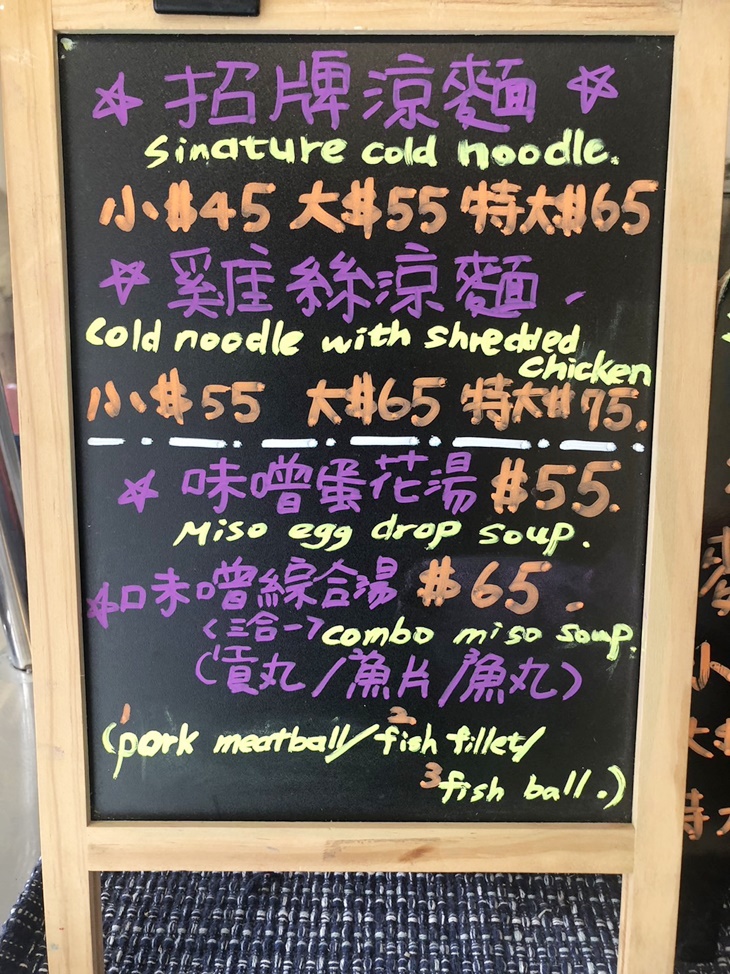 ☆ 招牌涼麵 ☆
Sinature cold noodle.
小$45 大$55 特大$65
☆ 雞絲涼麵
Cold noodle with shredded
chicken
小$55 大$65 特大$75.
☆ 味噌蛋花湯 $55.
Miso egg drop soup.
☆味噌綜合湯 $65.
<三合一> combo miso soup.
(1貢丸/2魚片/3魚丸)
(1pork meatball/2fish fillet/
3fish ball.)